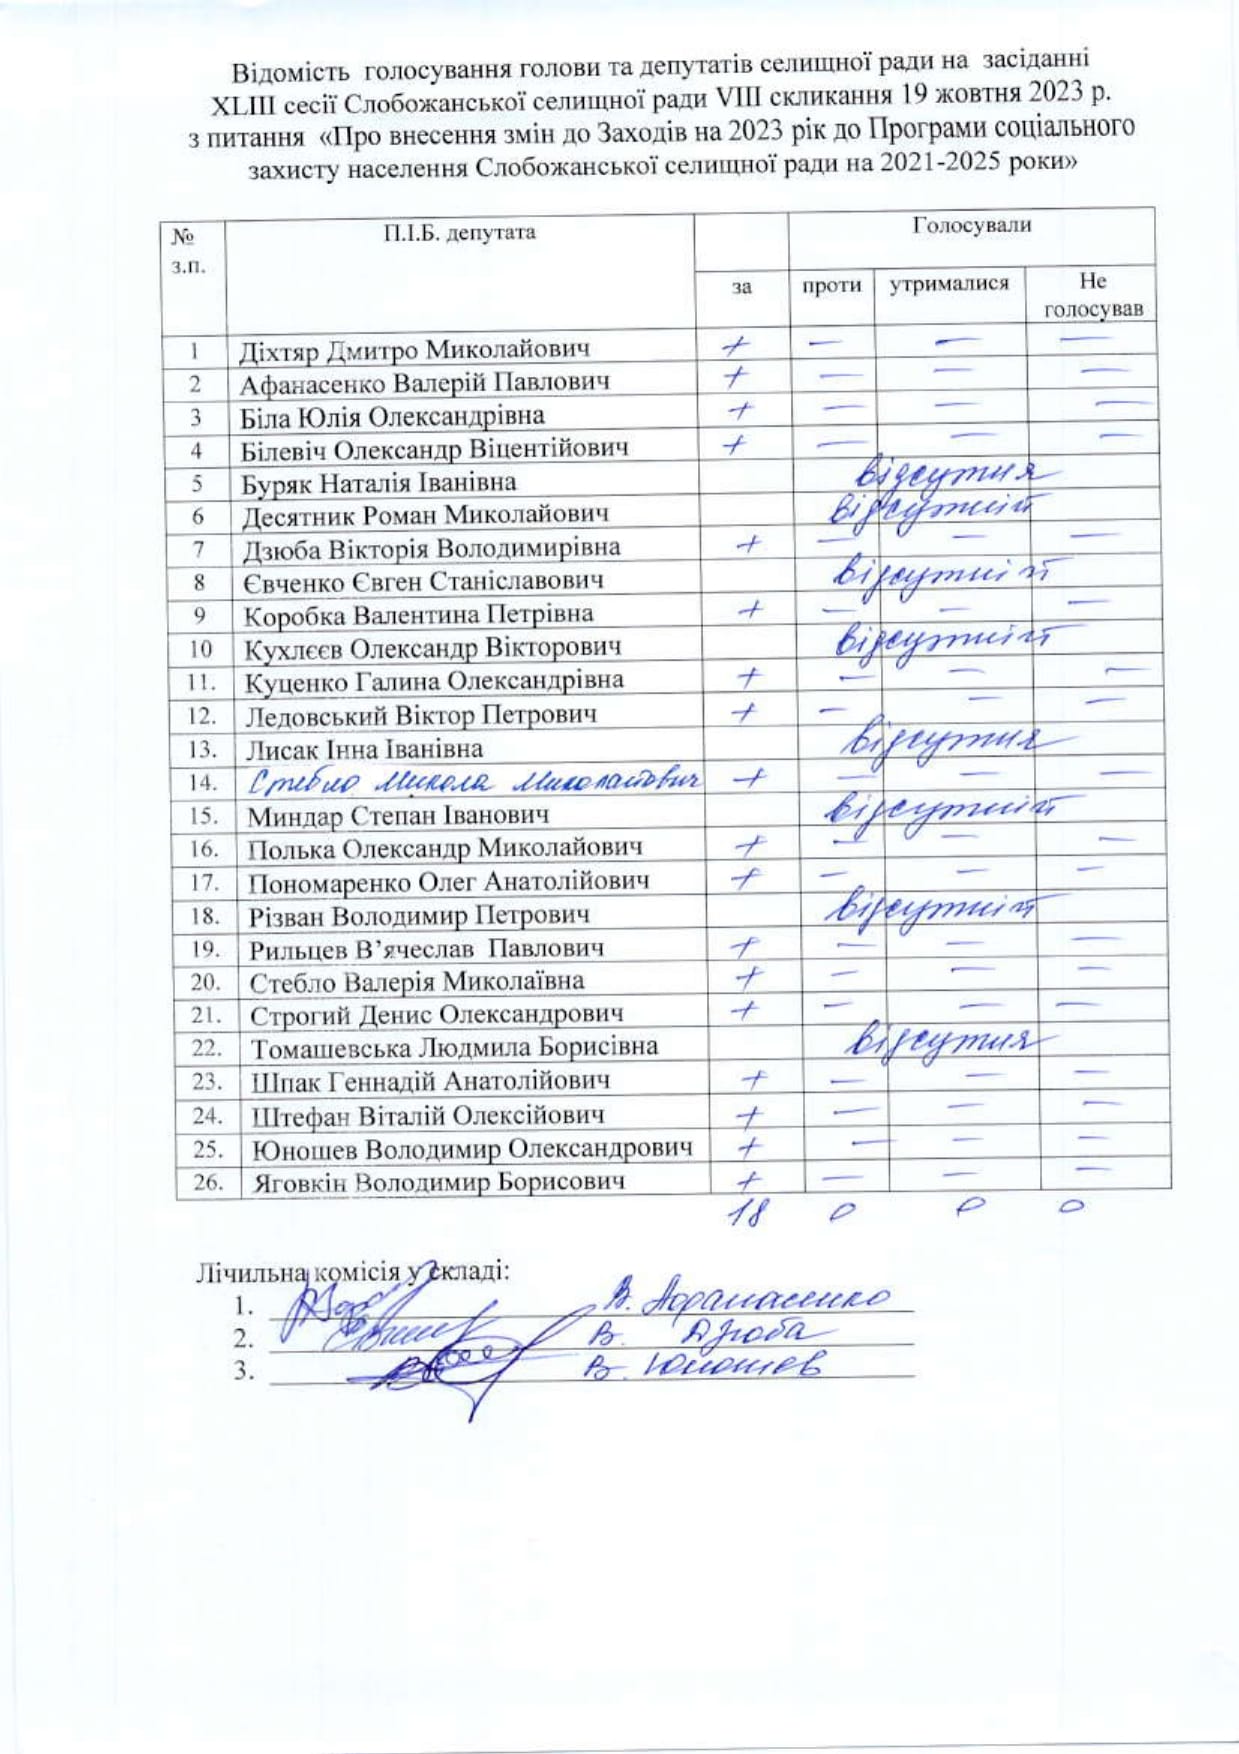 Відомість голосування голови та депутатів селищної ради на засіданні
XLIII сесії Слобожанської селищної ради VIII скликання 19 жовтня 2023 р.
з питання «Про внесення змін до Заходів на 2023 рік до Програми соціального
захисту населення Слобожанської селищної ради на 2021-2025 роки»
№ з.п. П.І.Б. депутата Голосували
за проти утрималися Не голосував
1 Діхтяр Дмитро Миколайович + — — —
2 Афанасенко Валерій Павлович + — — —
3 Біла Юлія Олександрівна + — — —
4 Білевіч Олександр Віцентійович + — — —
5 Буряк Наталія Іванівна відсутня
6 Десятник Роман Миколайович відсутній
7 Дзюба Вікторія Володимирівна + — — —
8 Євченко Євген Станіславович відсутній
9 Коробка Валентина Петрівна + — — —
10 Кухлєєв Олександр Вікторович відсутній
11. Куценко Галина Олександрівна + — — —
12. Ледовський Віктор Петрович + — — —
13. Лисак Інна Іванівна відсутня
14. Стебло Микола Миколайович + — — —
15. Миндар Степан Іванович відсутній
16. Полька Олександр Миколайович + — — —
17. Пономаренко Олег Анатолійович + — — —
18. Різван Володимир Петрович відсутній
19. Рильцев В’ячеслав Павлович + — — —
20. Стебло Валерія Миколаївна + — — —
21. Строгий Денис Олександрович + — — —
22. Томашевська Людмила Борисівна відсутня
23. Шпак Геннадій Анатолійович + — — —
24. Штефан Віталій Олексійович + — — —
25. Юношев Володимир Олександрович + — — —
26. Яговкін Володимир Борисович + — — —
18 0 0 0
Лічильна комісія у складі:
1. В. Афанасенко
2. В. Дзюба
3. В. Юношев